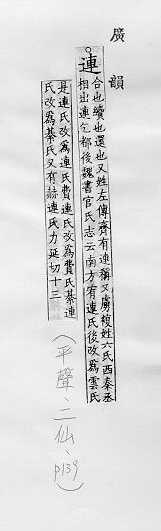 廣韻
連 合也續也還也又姓左傳齊有連稱又虜複姓六氏西秦丞
相出連乞都後魏書官氏志云南方宥連氏後改爲雲氏
是連氏改爲連氏費連氏改爲費氏綦連
氏改爲綦氏又有赫連氏力延切十三
(平聲、二仙、p139)